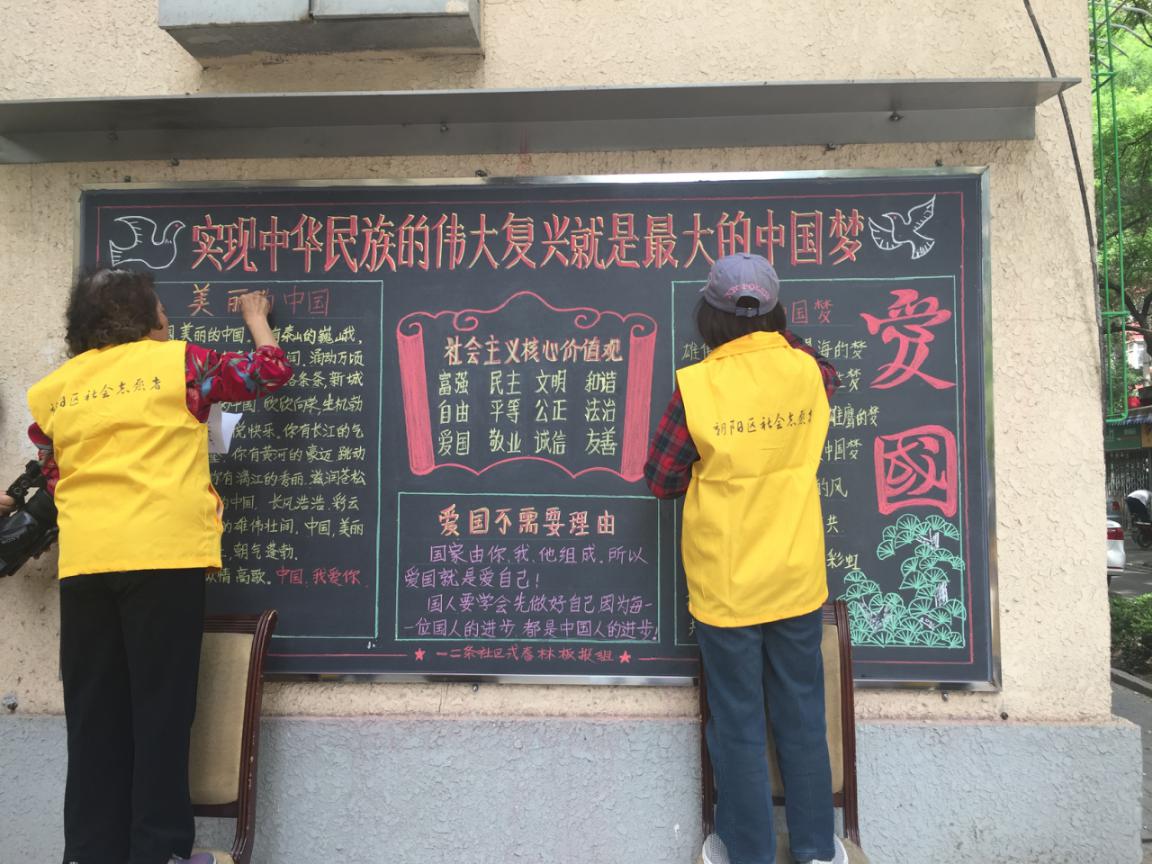 实现中华民族的伟大复兴就是最大的中国梦
美丽的中国
美丽的中国
泰山的巍峨,
涌动万顷
条条,新城
中国,欣欣向荣,生机勃
悦快乐。你有长江的气
你有黄河的豪迈 跳动
有漓江的秀丽 滋润苍松
的中国, 长风浩浩, 彩云
的雄伟壮阔, 中国,美丽
朝气蓬勃.
纵情高歌. 中国,我爱你.
社会主义核心价值观
富强 民主 文明 和谐
自由 平等 公正 法治
爱国 敬业 诚信 友善
爱国不需要理由
国家由你.我.他组成.所以
爱国就是爱自己!
国人要学会先做好自己因为每一
一位国人的进步.都是中国人的进步!
国梦
海的梦
的梦
中国梦
的风
共
彩虹
爱
國
★一二条社区戎春林板报组★
朝阳区社会志愿者
朝阳区社会志愿者